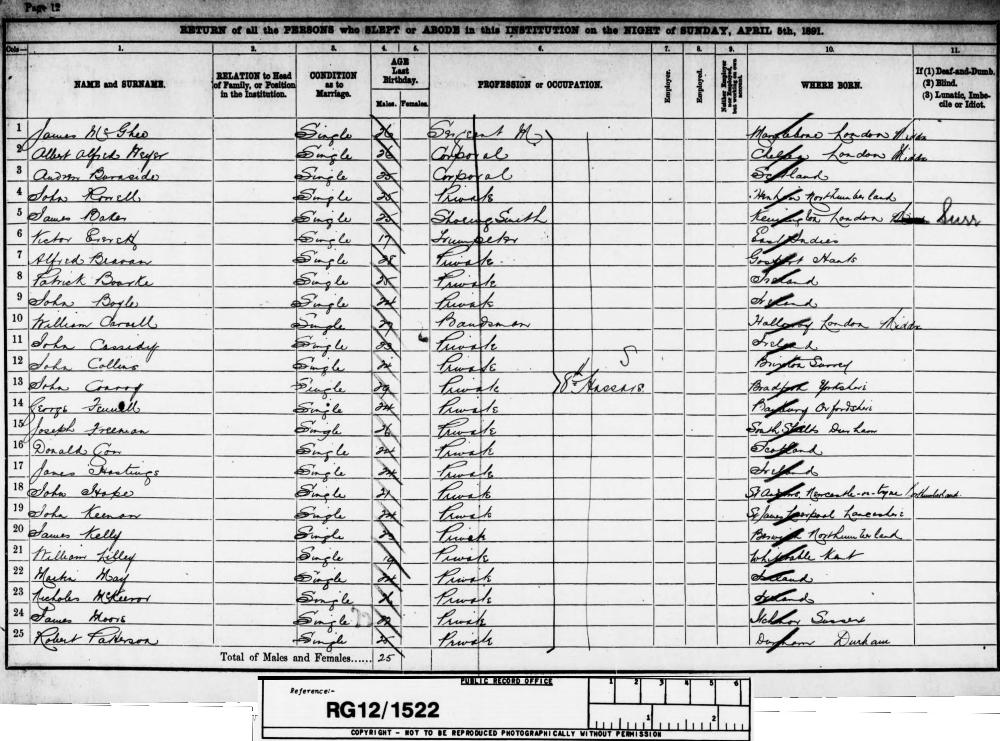 Page 12
RETURN of all the PERSONS who SLEPT or ABODE in this INSTITUTION on the NIGHT of SUNDAY, APRIL 5th, 1891.
Cols— 1. 2. 3. 4. 5. 6. 7. 8. 9. 10. 11.
NAME and SURNAME. RELATION to Head of Family, or Position in the Institution. CONDITION as to Marriage. AGE Last Birthday. Males. Females. PROFESSION or OCCUPATION. Employer. Employed. Neither Employer nor Employed, but working on own account. WHERE BORN. If (1) Deaf-and-Dumb. (2) Blind. (3) Lunatic, Imbecile or Idiot.
1 James McGhee Single 26 Sergeant Marylebone London Middx
2 Albert Alfred Single 26 Corporal Chelsea London Middx
3 Andrew Burnside Single 25 Corporal Scotland
4 John Single 25 Private Northumberland
5 James Baker Single 25 Shoeing Smith Kennington London Surr
6 Victor Everett Single 17 Trumpeter East Indies
7 Alfred Beavan Single 28 Private Gosport Hants
8 Patrick Bourke Single 25 Private Ireland
9 John Boyle Single 24 Private Ireland
10 William Single Bandsman London Middx
11 John Cassidy Single 23 Private Ireland
12 John Collins Single Private Brixton Surrey
S
13 John Conroy Single Private 8th Hussars Bradford Yorkshire
14 George Fennell Single 24 Private Banbury Oxfordshire
15 Joseph Freeman Single 26 Private South Shields Durham
16 Donald Single 24 Private Scotland
17 James Hastings Single 24 Private Ireland
18 John Hope Single 21 Private St Andrews Newcastle-on-tyne Northumberland
19 John Keenan Single 24 Private St James Liverpool Lancashire
20 James Kelly Single Private Berwick Northumberland
21 William Lilley Single 19 Private Whitstable Kent
22 Martin May Single 24 Private Ireland
23 Nicholas McKeever Single Private Ireland
24 James Moore Single 22 Private Sussex
25 Robert Patterson Single 25 Private Durham Durham
Total of Males and Females...... 25
PUBLIC RECORD OFFICE
Reference:-
RG12/1522
1 2 3 4 5 6
1 2
COPYRIGHT - NOT TO BE REPRODUCED PHOTOGRAPHICALLY WITHOUT PERMISSION